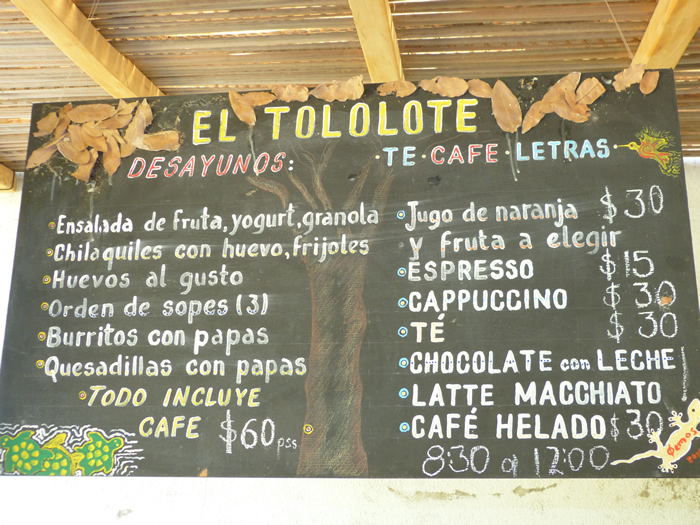 EL TOLOLOTE
DESAYUNOS:
Ensalada de fruta, yogurt, granola
Chilaquiles con huevo, frijoles
Huevos al gusto
Orden de sopes (3)
Burritos con papas
Quesadillas con papas
TODO INCLUYE
CAFE $60 pss
TE · CAFE · LETRAS
Jugo de naranja $30
y fruta a elegir
ESPRESSO $15
CAPPUCCINO $30
TÉ $30
CHOCOLATE con LECHE
LATTE MACCHIATO
CAFÉ HELADO $30
8:30 a 12:00